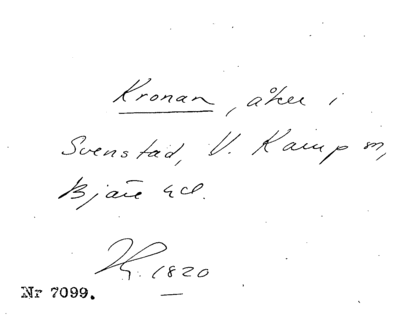 Kronan, åker i
Svenstad, V. Karup sn,
Bjäre hd.
1820
Nr 7099.